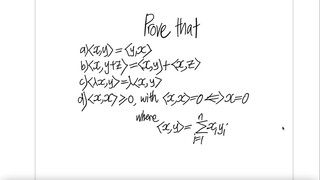 Prove that
a) <x,y> = <y,x>
b) <x,y+z> = <x,y> + <x,z>
c) <λx,y> = λ<x,y>
d) <x,x> ≥ 0, with <x,x> = 0 ⟺ x = 0
where
<x,y> = ∑_{i=1}^{n} x_i y_i